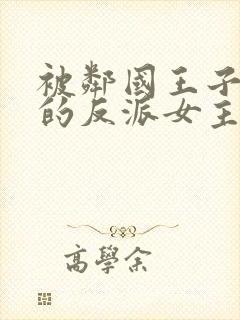 被鄰國王子
的反派女主
高學余